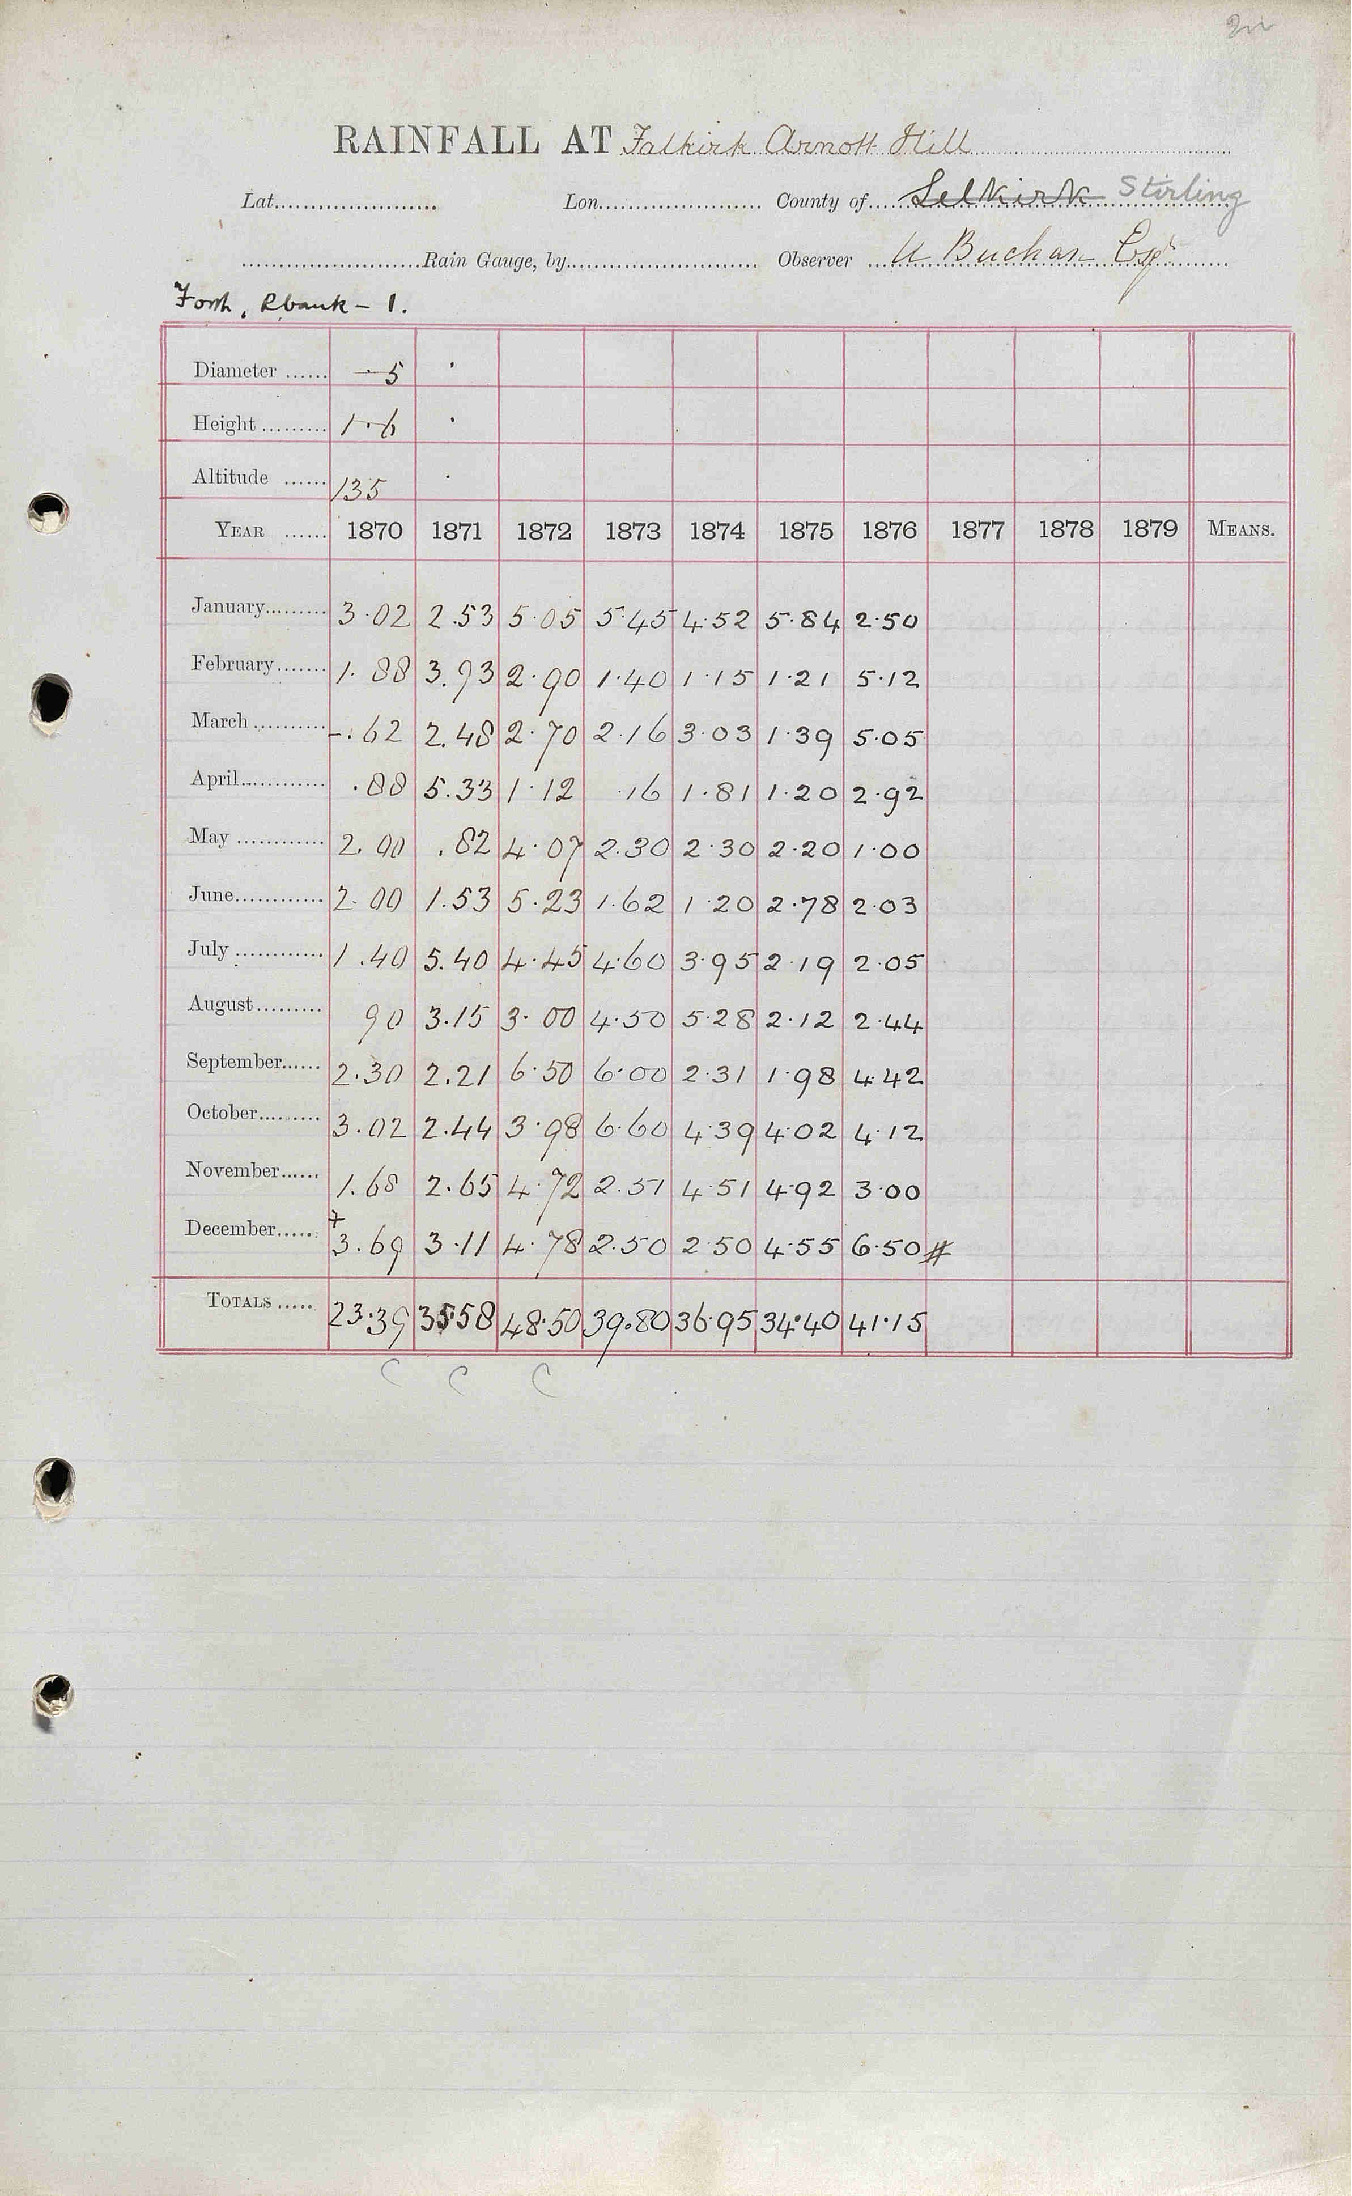 RAINFALL AT Falkirk Arnott Hill
Lat...................... Lon...................... County of.... Selkirk Stirling
........................Rain Gauge, by........................ Observer ... Buchan Esqr
Forth, Rbank - 1.
Diameter ...... —5 .
Height ......... 1·6 .
Altitude ...... 135 .
YEAR ...... 1870 1871 1872 1873 1874 1875 1876 1877 1878 1879 MEANS.
January......... 3·02 2.53 5·05 5·45 4·52 5·84 2·50
February....... 1.88 3.93 2·90 1·40 1·15 1·21 5·12
March .......... -.62 2.48 2·70 2·16 3·03 1·39 5·05
April............ .88 5.33 1·12 ·16 1·81 1·20 2·92
May ............ 2.00 .82 4·07 2.30 2·30 2·20 1·00
June............ 2.00 1.53 5·23 1·62 1·20 2·78 2·03
July ............ 1.40 5.40 4·45 4·60 3·95 2·19 2·05
August......... 90 3.15 3·00 4·50 5·28 2·12 2·44
September...... 2.30 2.21 6·50 6·00 2·31 1·98 4·42
October......... 3.02 2.44 3·98 6·60 4·39 4·02 4·12
November...... 1.68 2.65 4·72 2.51 4·51 4·92 3·00
December...... + 3.69 3·11 4·78 2.50 2·50 4·55 6·50 #
TOTALS ..... 23·39 35·58 48·50 39·80 36·95 34·40 41·15
C C C